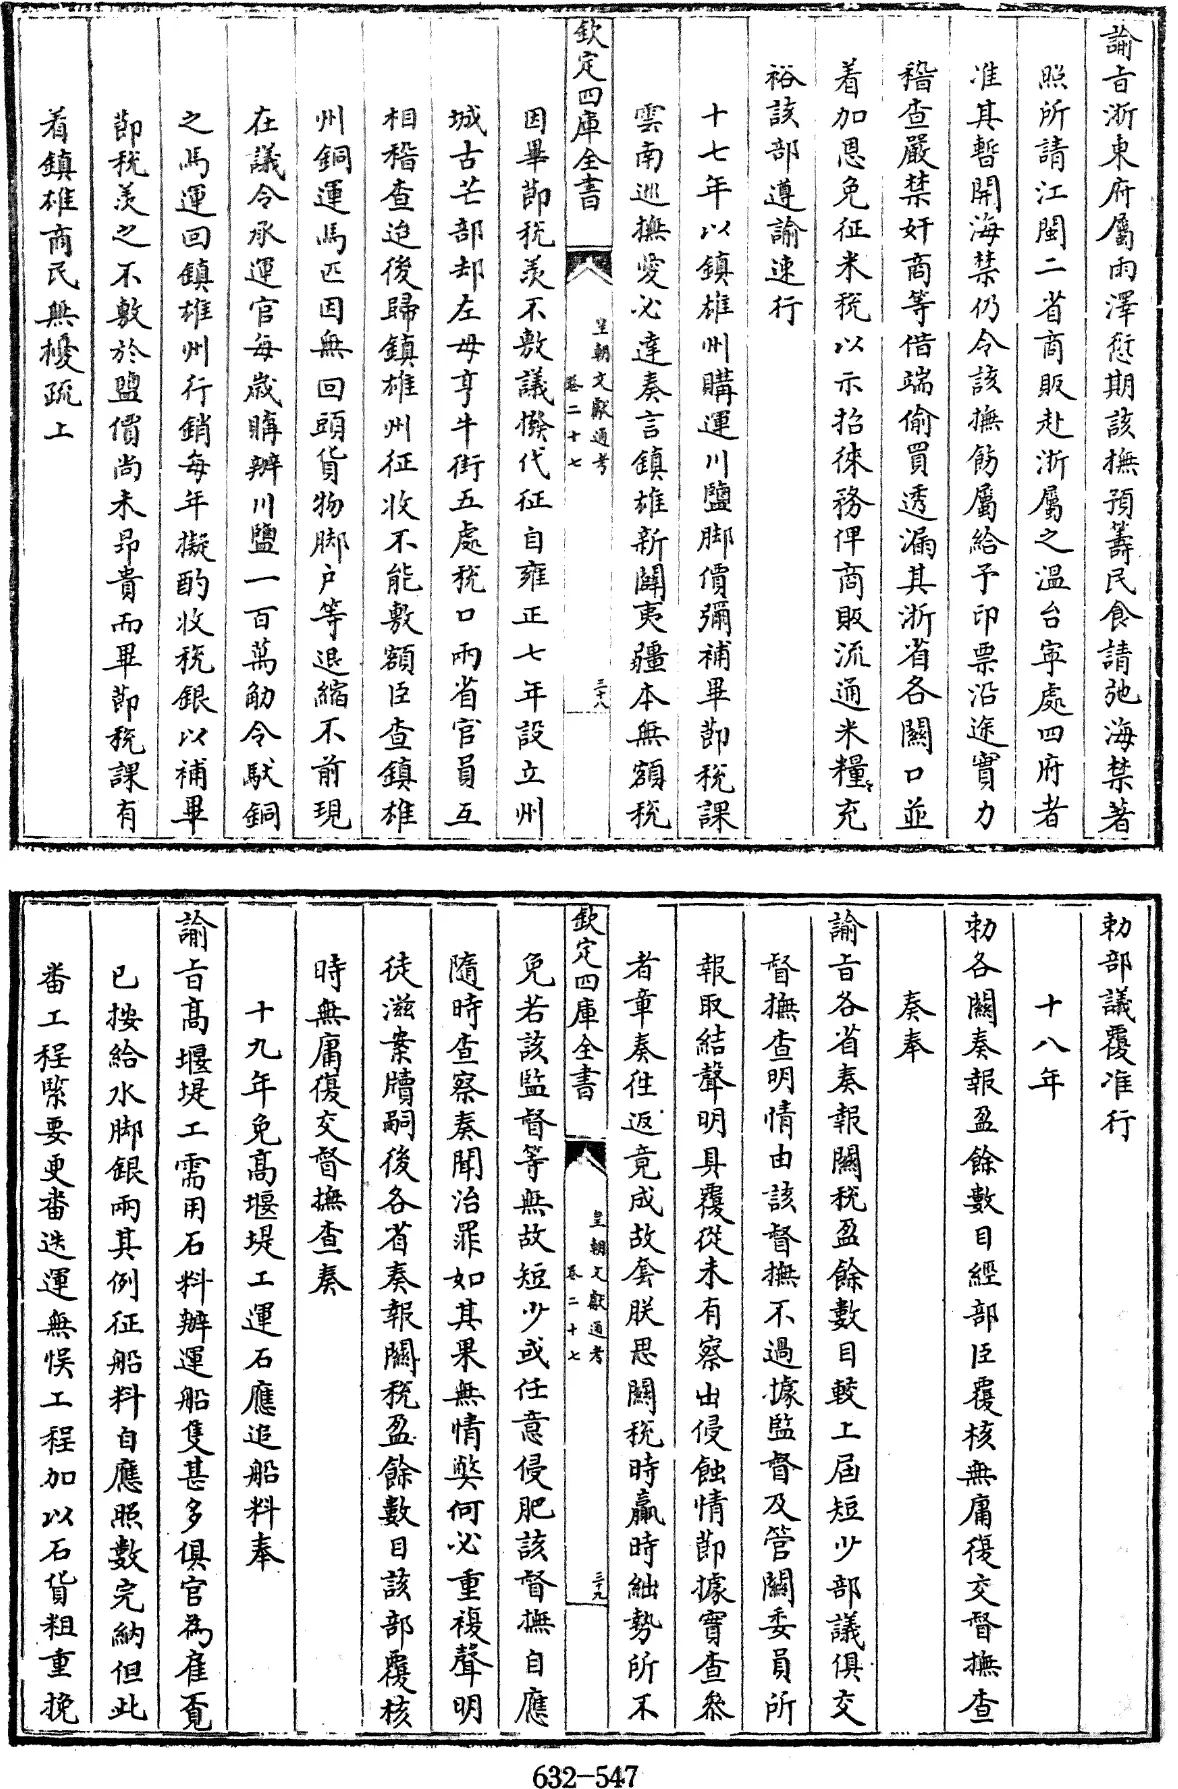 諭旨浙東府屬雨澤愆期該撫預籌民食請弛海禁著
照所請江閩二省商販赴浙屬之溫台寧處四府者
准其暫開海禁仍令該撫飭屬給予印票沿途實力
稽查嚴禁奸商等借端偷買透漏其浙省各關口並
着加恩免征米稅以示招徠務俾商販流通米糧充
裕該部遵諭速行
十七年以鎮雄州購運川鹽脚價彌補畢節稅課
雲南巡撫愛必達奏言鎮雄新闢夷疆本無額稅
欽定四庫全書
皇朝文獻通考
卷二十七
三十八
因畢節稅羡不敷議撥代征自雍正七年設立州
城古芒部却左毋亨牛街五處稅口兩省官員互
相稽查迨後歸鎮雄州征收不能敷額臣查鎮雄
州銅運馬匹因無回頭貨物脚户等退縮不前現
在議令承運官每歲購辦川鹽一百萬觔令馱銅
之馬運回鎮雄州行銷每年擬酌收稅銀以補畢
節稅羡之不敷於鹽價尚未昂貴而畢節稅課有
着鎮雄商民無擾疏上
勅部議覆准行
十八年
勅各關奏報盈餘數目經部臣覆核無庸復交督撫查
奏奉
諭旨各省奏報關稅盈餘數目較上屆短少部議俱交
督撫查明情由該督撫不過據監督及管關委員所
報取結聲明具覆從未有察出侵蝕情節據實查叅
者章奏徃返竟成故套朕思關稅時贏時絀勢所不
欽定四庫全書
皇朝文獻通考
卷二十七
三十九
免若該監督等無故短少或任意侵肥該督撫自應
隨時查察奏聞治罪如其果無情弊何必重複聲明
徒滋案牘嗣後各省奏報關稅盈餘數目該部覆核
時無庸復交督撫查奏
十九年免高堰堤工運石應追船料奉
諭旨高堰堤工需用石料辦運船隻甚多俱官為雇覓
已按給水脚銀兩其例征船料自應照數完納但此
番工程緊要更番迭運無悞工程加以石貨粗重挽
632-547